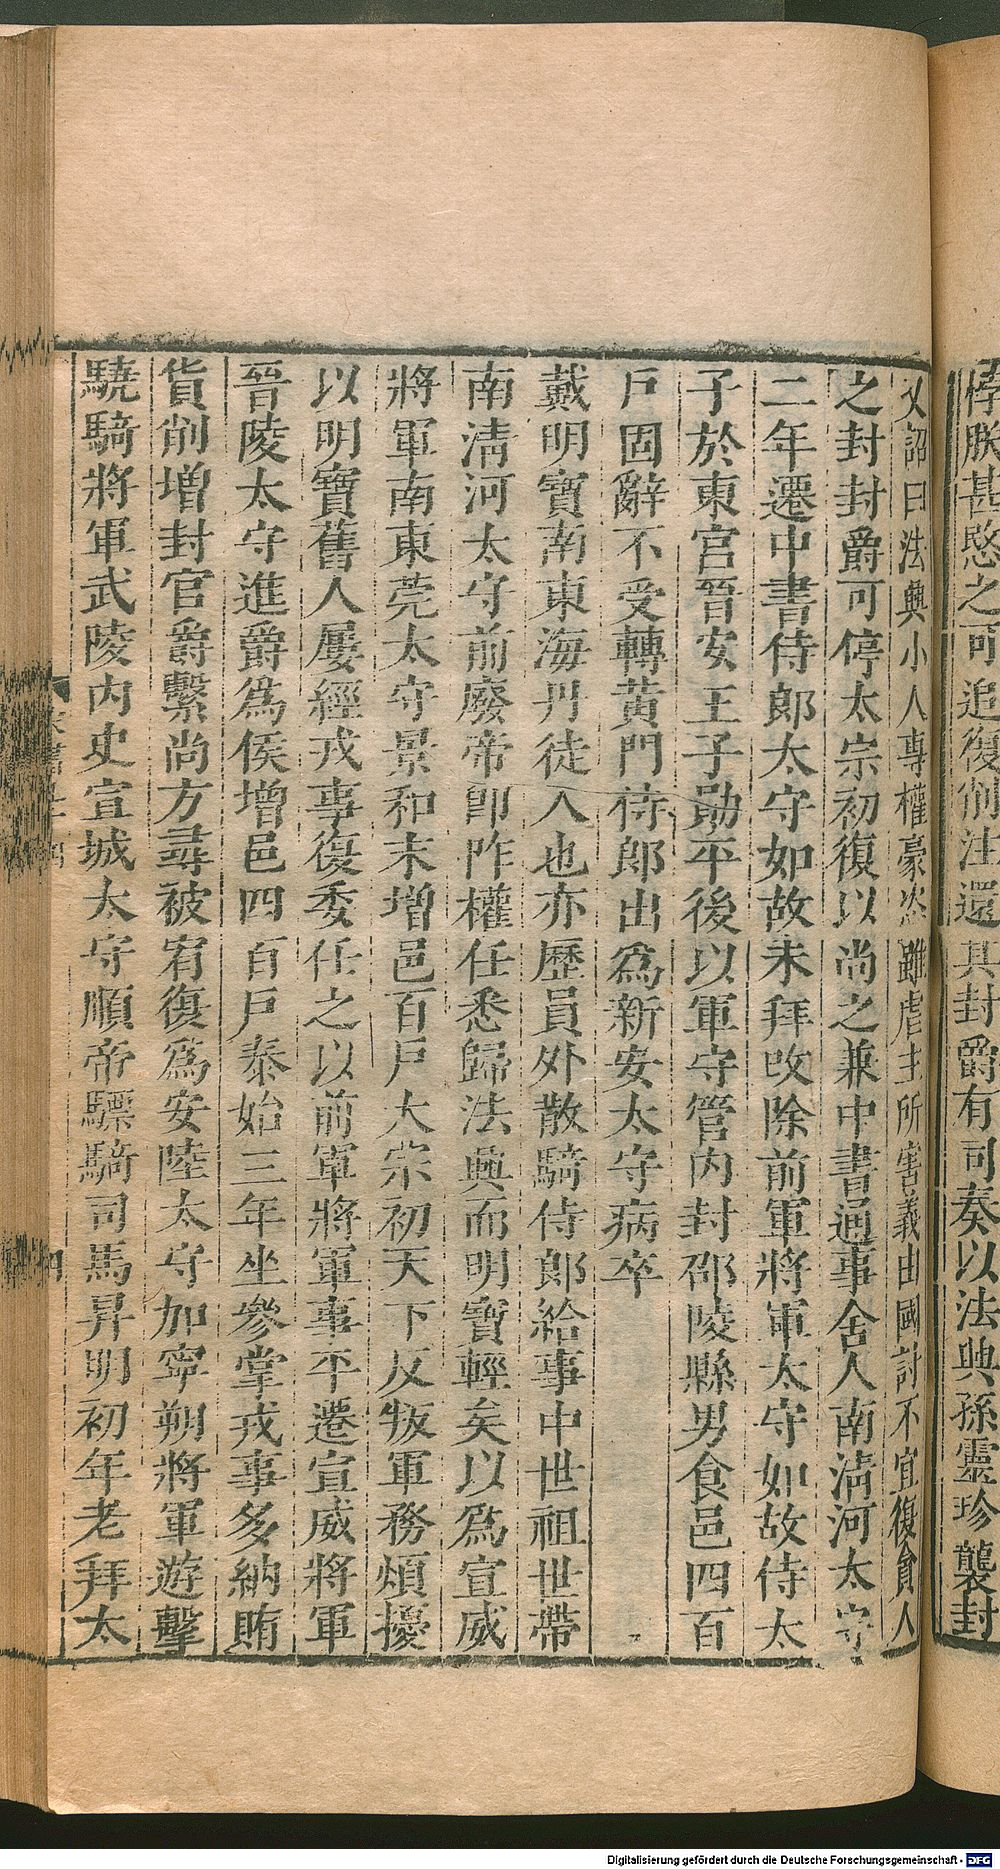 悖朕甚愍之可追復削注還其封爵有司奏以法興孫靈珍襲封
又詔曰法興小人專權豪恣雖虐主所害義由國討不宜復貪人
之封封爵可停太宗初復以尚之兼中書通事舍人南清河太守
二年遷中書侍郎太守如故未拜改除前軍將軍太守如故侍太
子於東宮晉安王子勛平後以軍守管內封邵陵縣男食邑四百
戶固辭不受轉黃門侍郎出爲新安太守病卒
戴明寶南東海丹徒人也亦歷員外散騎侍郎給事中世祖世帶
南清河太守前廢帝卽阼權任悉歸法興而明寶輕矣以爲宣威
將軍南東莞太守景和末增邑百戶太宗初天下反叛軍務煩擾
以明寶舊人屢經戎事復委任之以前軍將軍事平遷宣威將軍
晉陵太守進爵爲侯增邑四百戶泰始三年坐參掌戎事多納賄
貨削增封官爵繫尚方尋被宥復爲安陸太守加寧朔將軍遊擊
驍騎將軍武陵內史宣城太守順帝驃騎司馬昇明初年老拜太
四
Digitalisierung gefördert durch die Deutsche Forschungsgemeinschaft - DFG